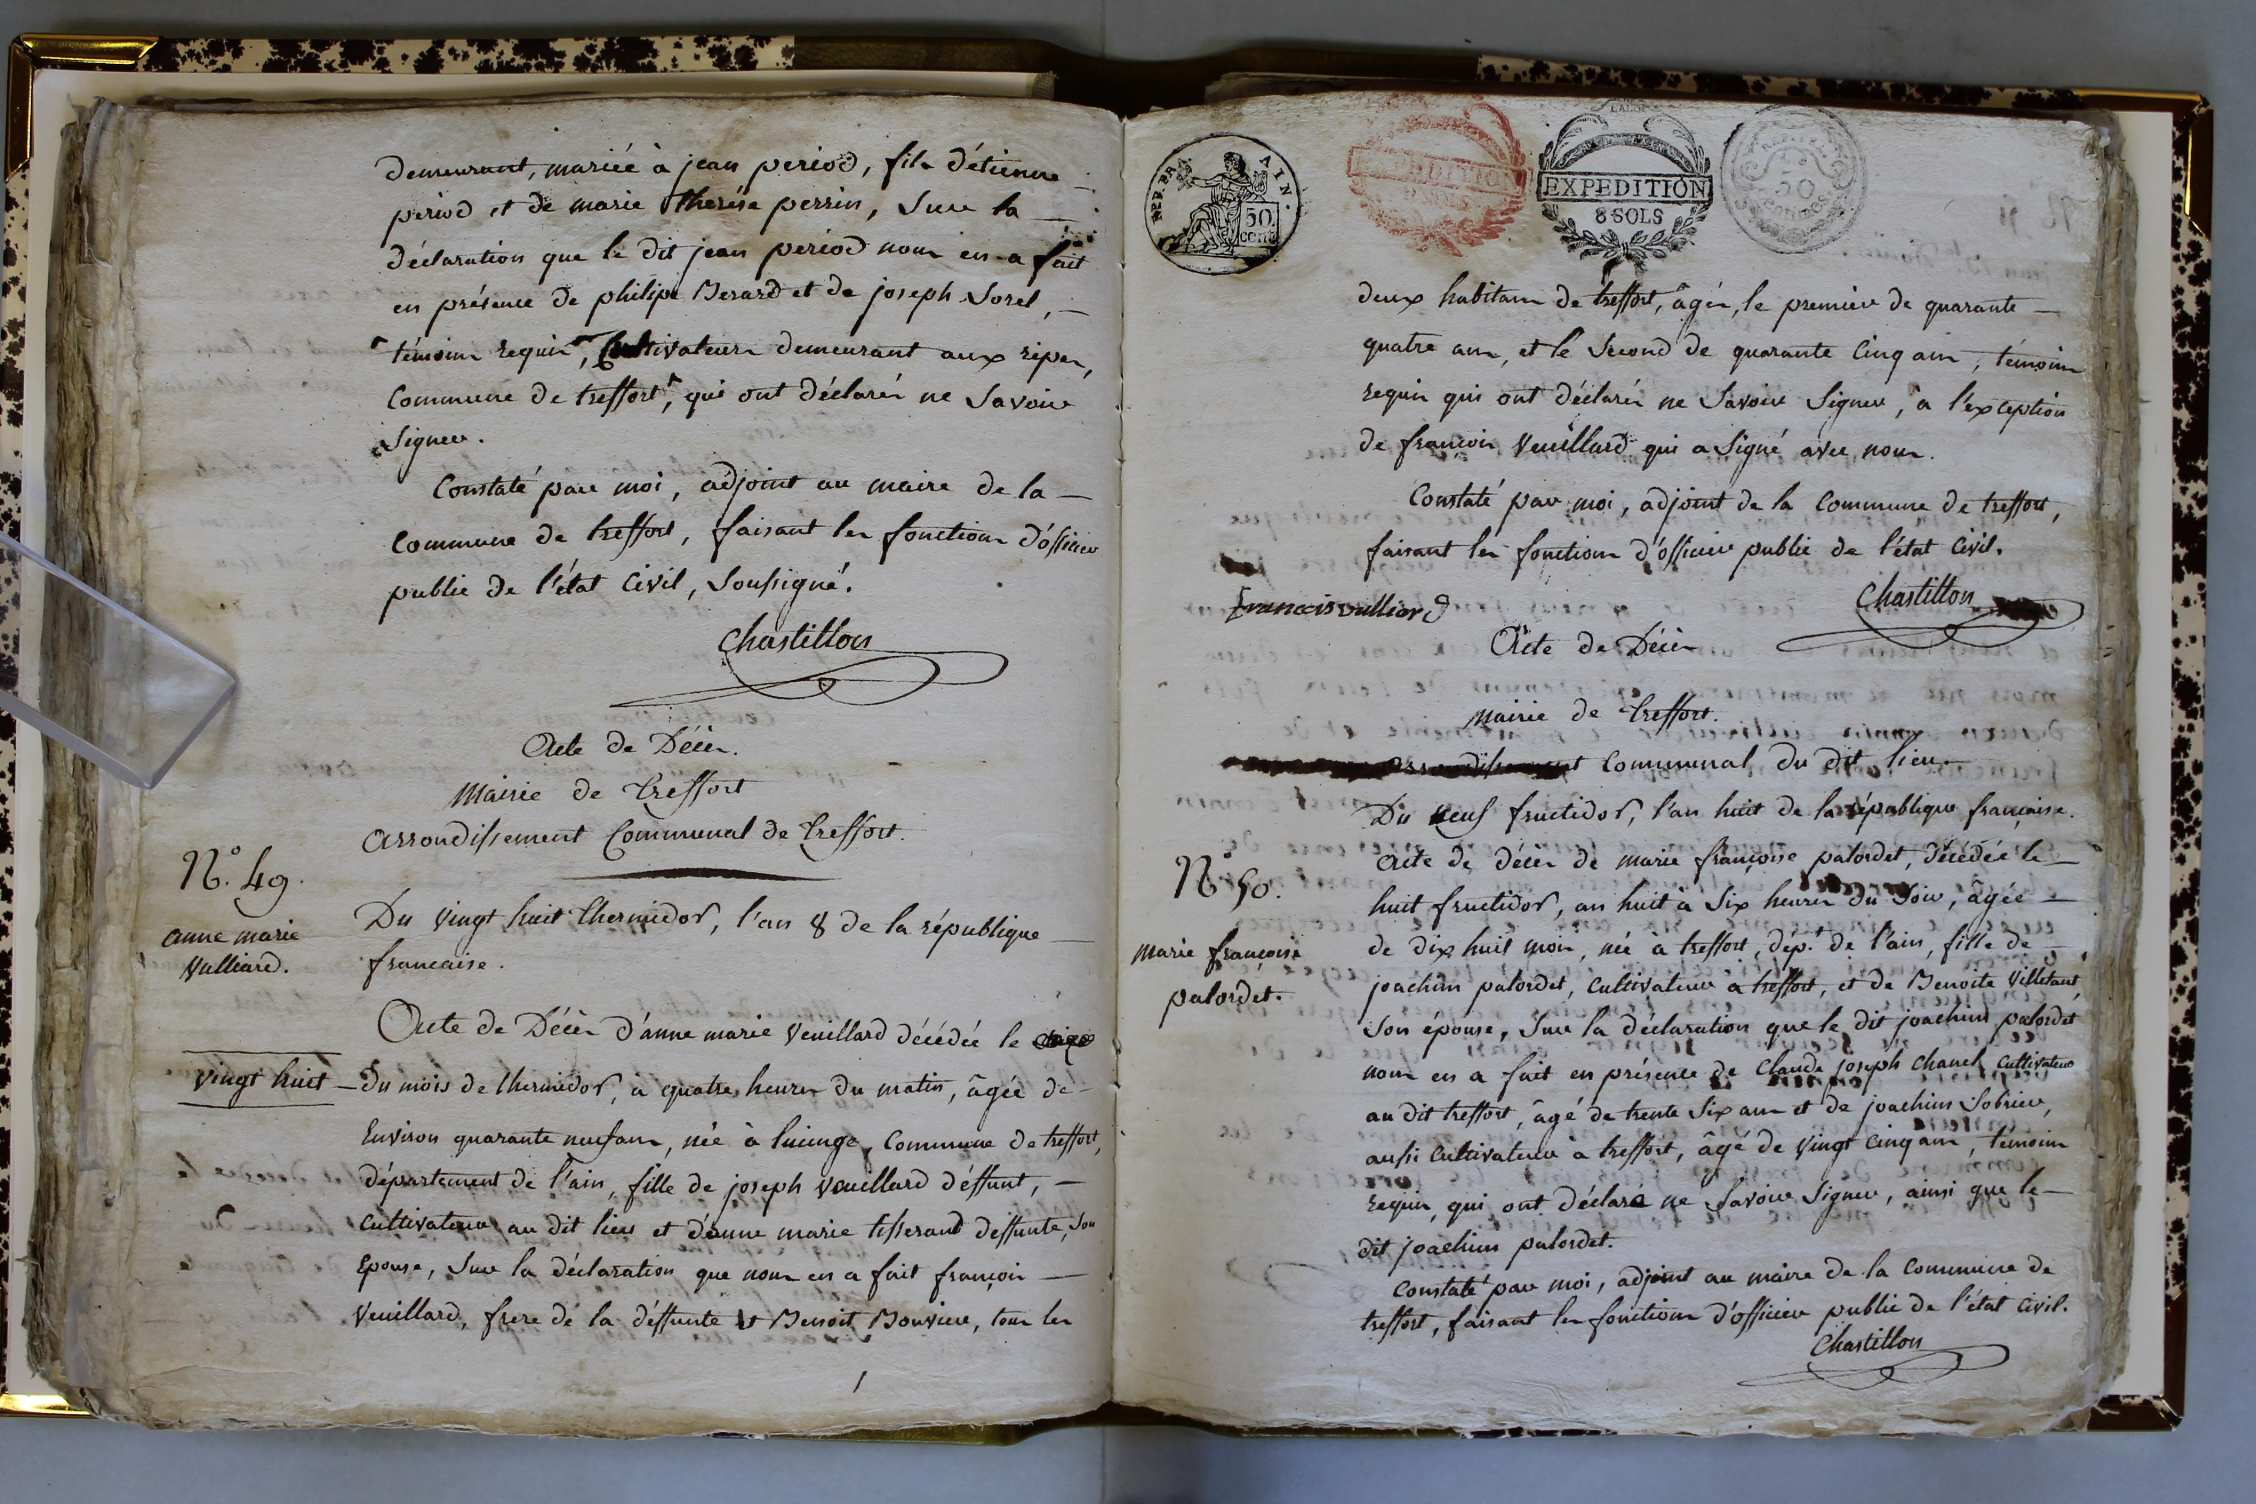 demeurant, mariée à jean period, fils d'étienne
period et de marie thérése perrin, sur la
déclaration que le dit jean period nous en a fait
en présence de philipe Berard et de joseph Sorel,
témoins requis, Cultivateurs demeurant aux ripes,
Commune de treffort, qui ont déclarés ne Savoir
Signer.
Constaté par moi, adjoint au maire de la
Commune de treffort, faisant les fonctions d'officier
public de l'état Civil, Soussigné.
Chastillon
Acte de Décès.
Mairie de Treffort
Arrondissement Communal de Treffort.
N.o 49.
anne marie
Vulliard.
Du vingt huit thermidor, l'an 8 de la république
francaise.
Acte de Décès d'anne marie Veuillard décédée le
vingt huit
du mois de thermidor, à quatre heures du matin, âgée de
Environ quarante neuf ans, née à lucinge, Commune de treffort,
département de l'ain, fille de joseph Veuillard déffunt,
Cultivateur au dit lieu et d'anne marie tisserand deffunte, Son
Epouse, Sur la déclaration que nous en a fait françois
Veuillard, frere de la déffunte et Benoit Bouvier, tous les
DEP. PAR
AIN.
50
cent
EXPEDITION
EXPEDITION
8 SOLS
50
centimes
deux habitans de treffort, âgés, le premier de quarante
quatre ans, et le Second de quarante Cinq ans, témoins
requis qui ont déclarés ne Savoir Signer, à l'exception
de françois Veuillard qui a Signé avec nous.
Constaté par moi, adjoint de la Commune de treffort,
faisant les fonctions d'officier public de l'état Civil.
francois vulliard
Chastillon
Acte de Décès
Mairie de Treffort.
Communal du dit lieu.
Du neuf fructidor, l'an huit de la république française.
N.o 50.
Marie françoise
palordet.
Acte de décès de marie françoise palordet, décédée le
huit fructidor, an huit à Six heures du Soir, âgée
de dix huit mois, née à treffort, dép.t de l'ain, fille de
joachim palordet, Cultivateur a treffort, et de Benoite Villetant
Son épouse, Sur la déclaration que le dit joachim palordet
nous en a fait en présence de Claude joseph Chanel Cultivateur
au dit treffort, âgé de trente Six ans et de joachim Sobrier,
aussi Cultivateur à treffort, âgé de vingt Cinq ans, témoins
requis, qui ont déclaré ne Savoir Signer, ainsi que le
dit joachim palordet.
Constaté par moi, adjoint au maire de la Commune de
treffort, faisant les fonctions d'officier public de l'état Civil.
Chastillon